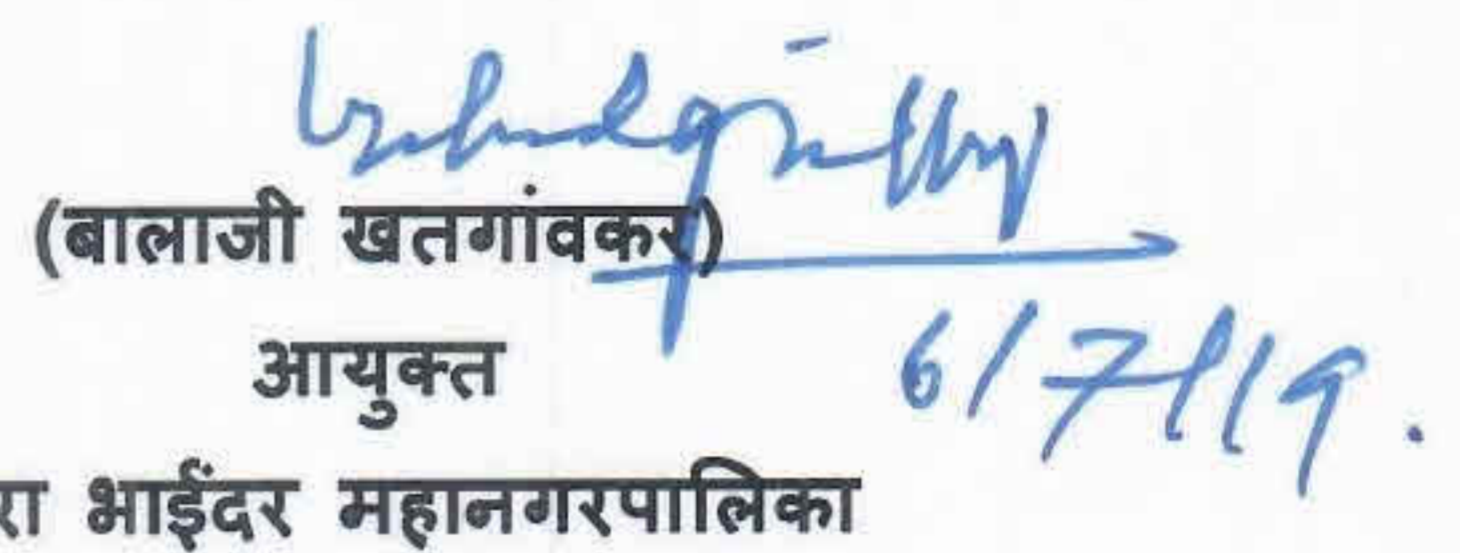 (बालाजी खतगांवकर)
6/7/19.
आयुक्त
रा भाईंदर महानगरपालिका